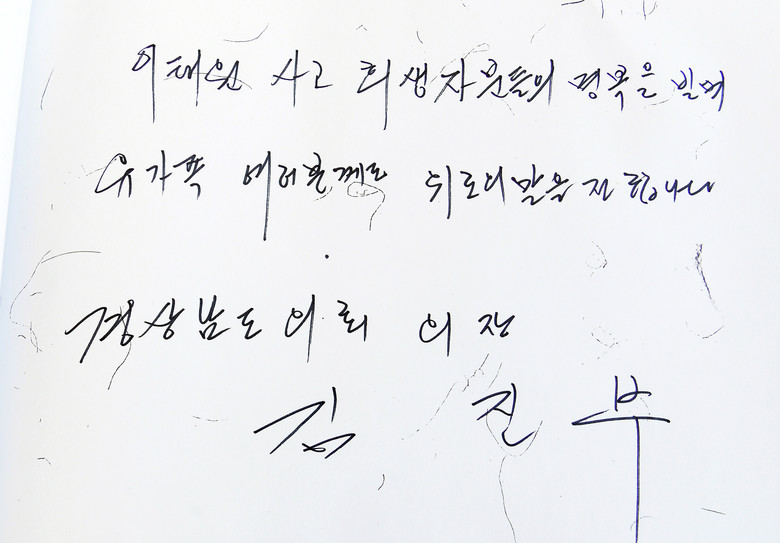 이태원 사고 희생자분들의 명복을 빌며
유가족 여러분께도 위로의말을 전합니다
경상남도의회 의장
김 진 부